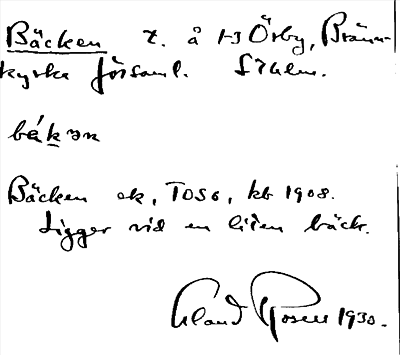 Bäcken t. å 1-3 Örby, Bränn-
kyrka församl. Sthlm.
bä́kɜn
Bäcken ek, TOSG, kb 1908.
Ligger vid en liten bäck.
Roser 1930.